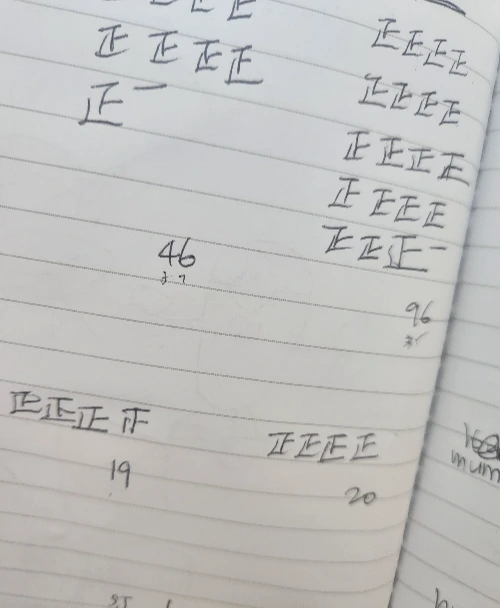 正正正正
正正正正
正一
46
正正正正
正正正正
正正正正
正正正正
正正正一
96
正正正正
19
正正正正
20
mum